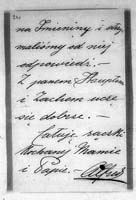 na Imieniny i otrzy
maliśmy od niej
odpowiedź. -
Z panem Skupień
i Zachem uczę
się dobrze. -
Całuję rączki
Kochanej Mamie
i Papie. -